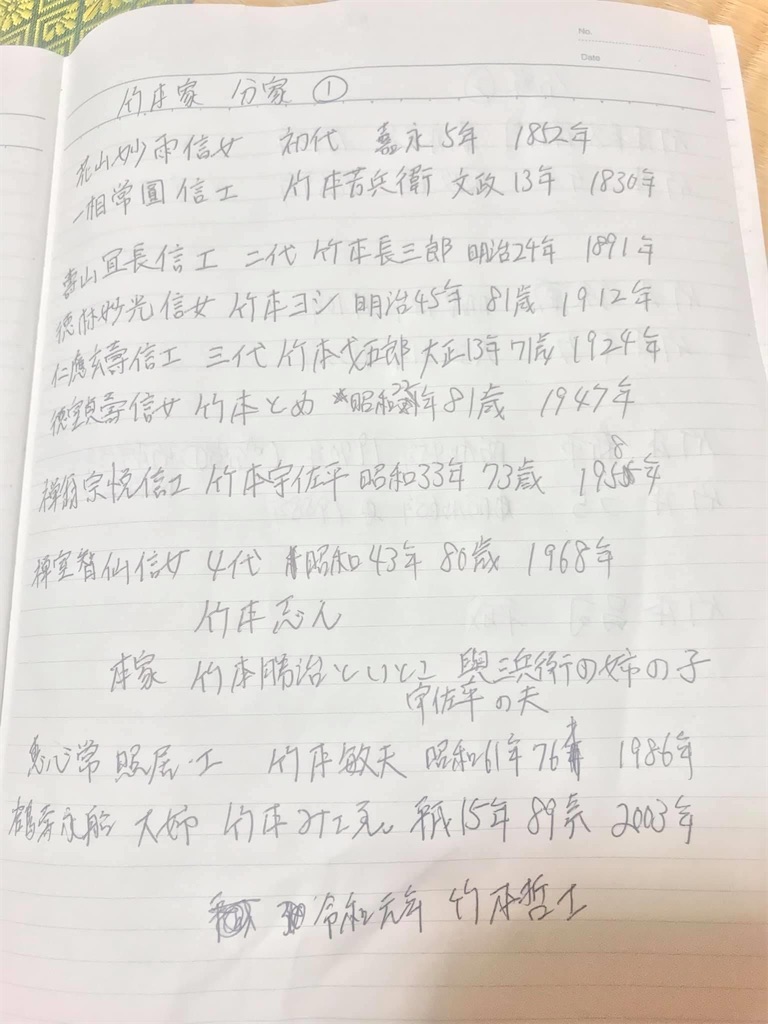 No.
Date
竹本家 分家 ①
花山妙雨信女 初代 嘉永5年 1852年
一相常圓信士 竹本吉兵衛 文政13年 1830年
壽山宜長信士 二代 竹本長三郎 明治24年 1891年
徳林妙光信女 竹本ヨシ 明治45年 81歳 1912年
仁應玄壽信士 三代 竹本 大正13年 71歳 1924年
徳室貞壽信女 竹本とめ 昭和22年 81歳 1947年
禅翁宗悦信士 竹本宇佐平 昭和33年 73歳 1958年
禅室智仙信女 4代 昭和43年 80歳 1968年
竹本
本家 竹本勝治といとこ 與三兵衛の姉の子
宇佐平の夫
常照居士 竹本敏夫 昭和61年 76才 1986年
大姉 竹本みエ 平成15年 89歳 2003年
令和元年 竹本哲士